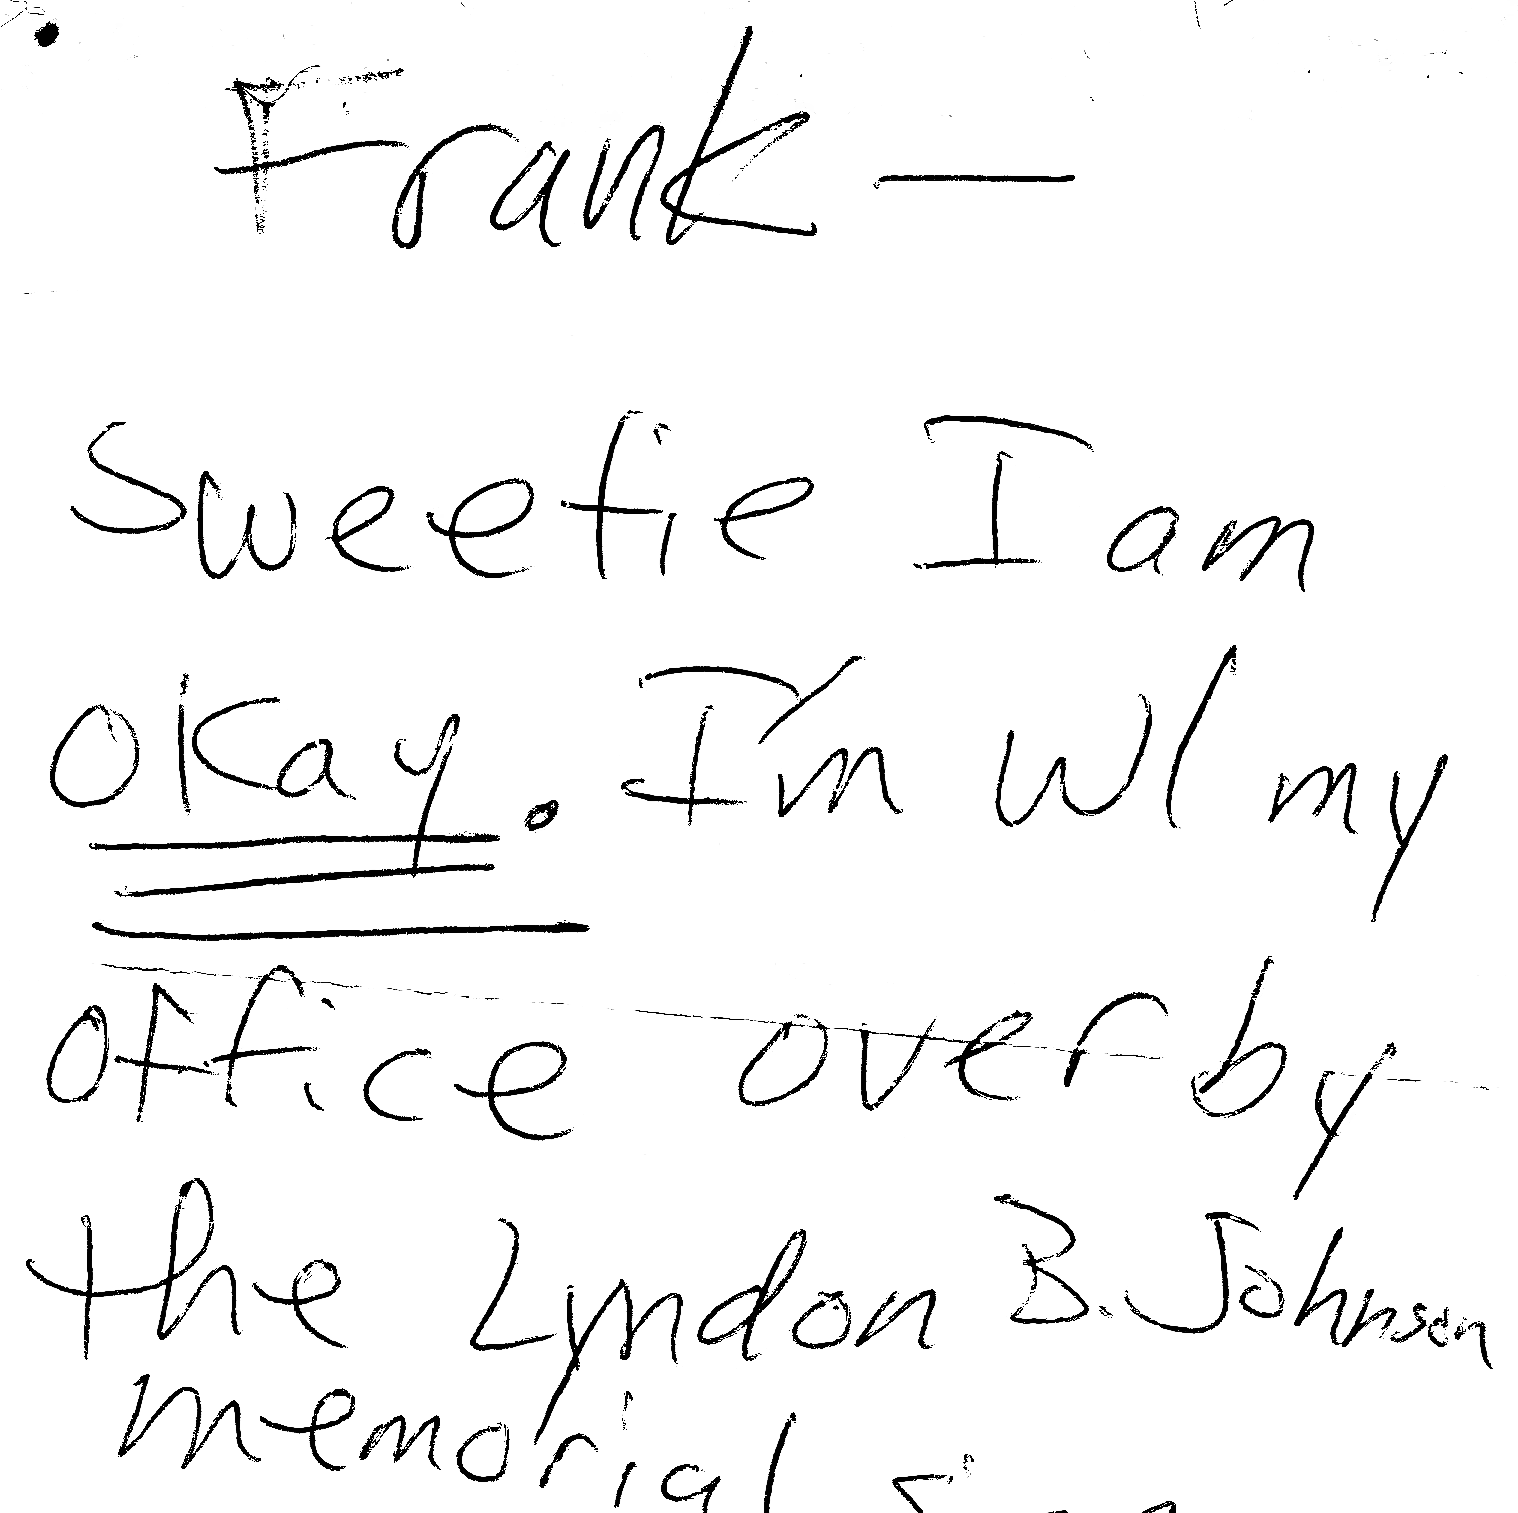 Frank —
Sweetie I am
okay. I'm w/ my
office over by
the Lyndon B. Johnson
memorial